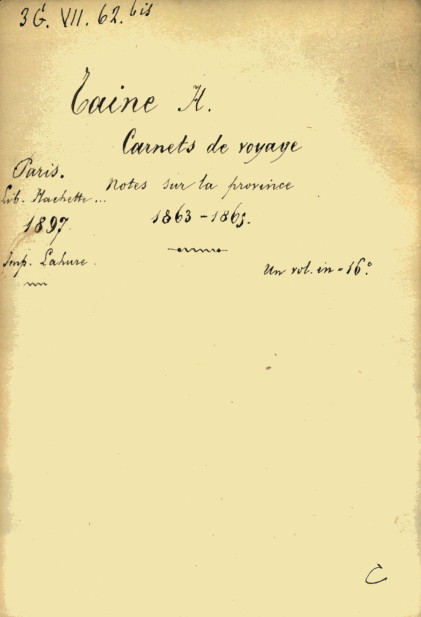 3G. VII. 62.bis
Taine H.
Carnets de voyage
Notes sur la province
1863 - 1865.
Paris.
Lib. Hachette...
1897
Imp. Lahure.
Un vol. in-16°
C